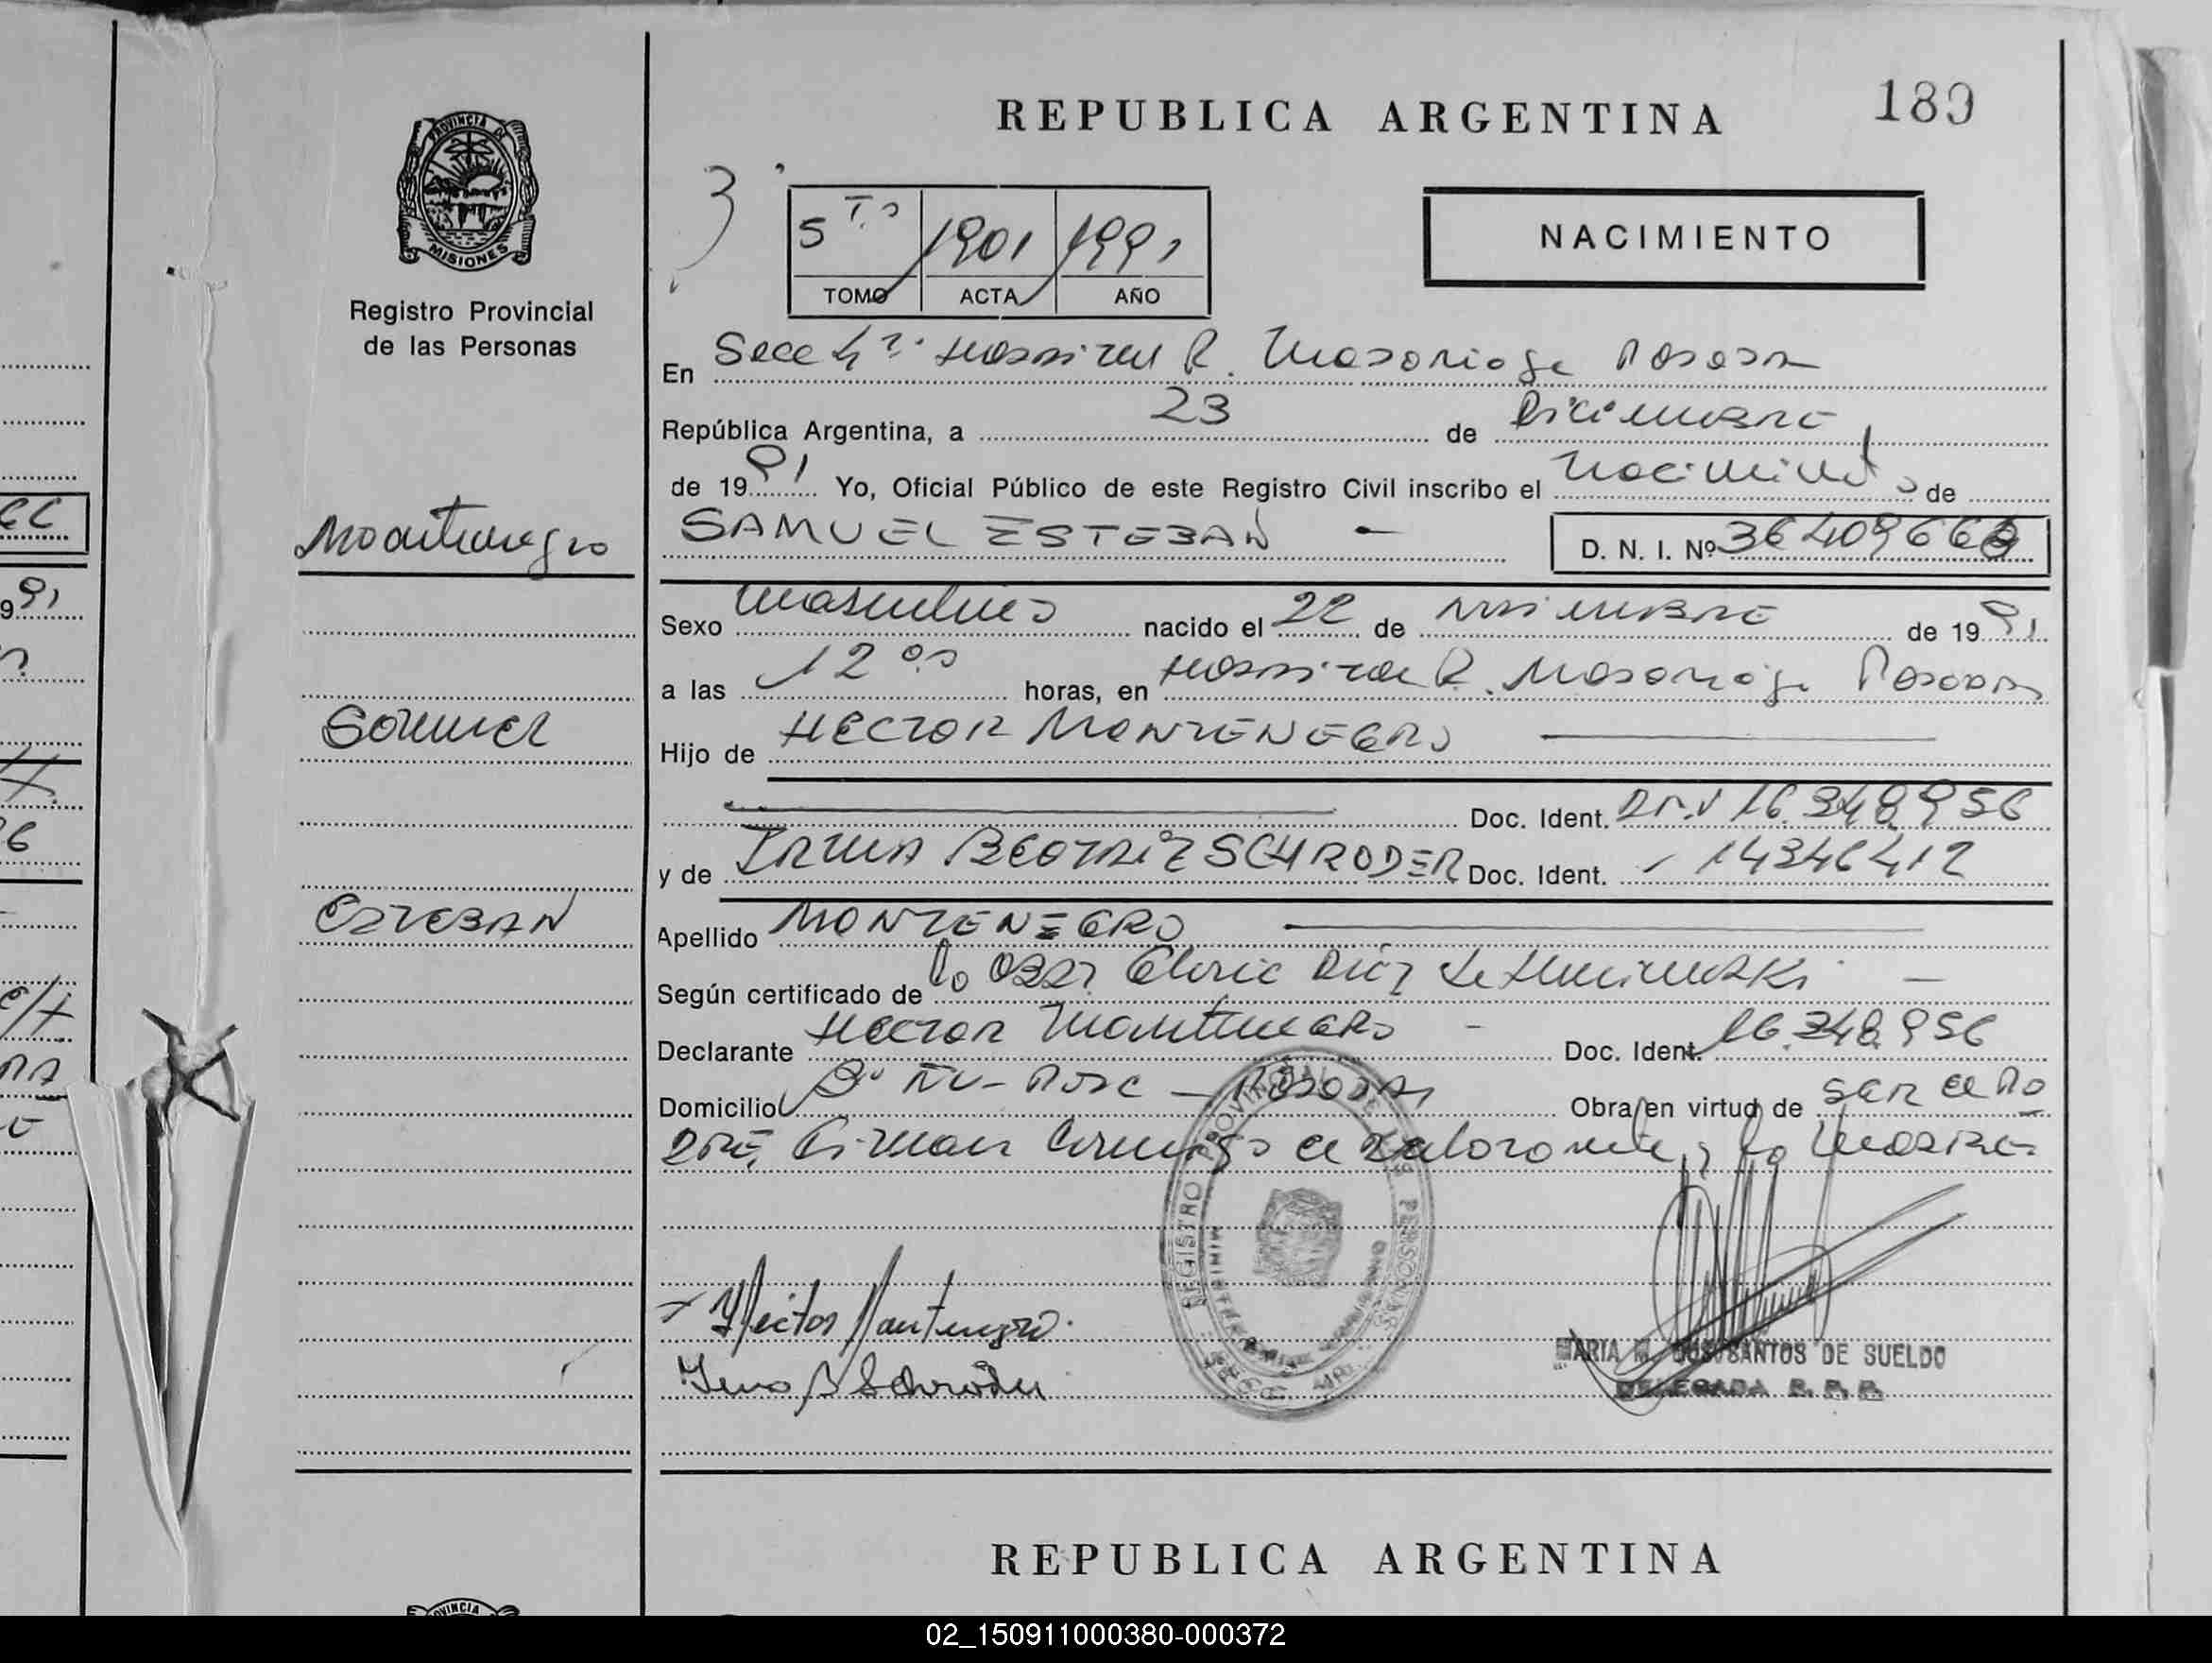 REPUBLICA ARGENTINA
189
PROVINCIA DE
MISIONES
Registro Provincial
de las Personas
3
5to 1901 1991
TOMO ACTA AÑO
NACIMIENTO
En Secc 4ª Hospital R. Madariaga Posadas
República Argentina, a 23 de Diciembre
de 1991 Yo, Oficial Público de este Registro Civil inscribo el Nacimiento de
Montenegro
SAMUEL ESTEBAN -
D. N. I. Nº 36409668
Sexo Masculino nacido el 22 de Diciembre de 1991
a las 12 horas, en Hospital R. Madariaga Posadas
Samuel
Hijo de HECTOR MONTENEGRO
Doc. Ident. DNI 16.348.956
y de IRMA BEATRIZ SCHRODER Doc. Ident. 14346412
ESTEBAN
Apellido MONTENEGRO
Según certificado de la Obst.
Declarante HECTOR MONTENEGRO - Doc. Ident. 16.348.956
Domicilio Posadas Obra en virtud de ser el Pa
dre, Firman conmigo el declarante y la Madre
REGISTRO PROVINCIAL DE LAS PERSONAS
Hector Montenegro.
Irma B Schroder
MARIA M. DOS SANTOS DE SUELDO
DELEGADA R. P. P.
REPUBLICA ARGENTINA
02_150911000380-000372